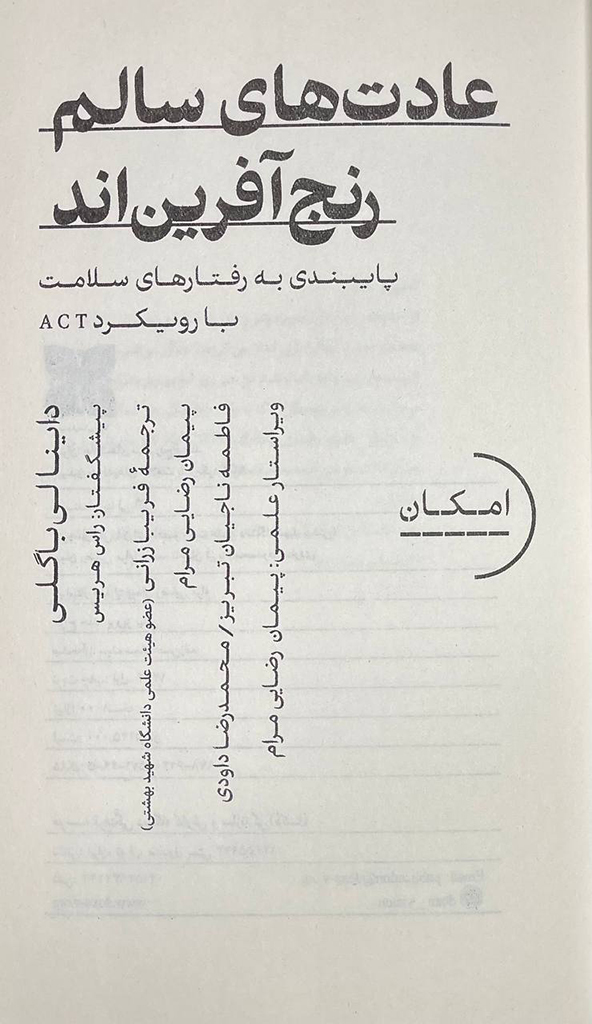 عادت‌های سالم
رنج‌آفرین‌اند
پایبندی به رفتارهای سلامت
با رویکرد ACT
داینا لی باگلی
پیشگفتار: راس هریس
ترجمهٔ فریبا زرانی (عضو هیئت علمی دانشگاه شهید بهشتی)
پیمان رضایی مرام
فاطمه ناجیان تبریز / محمدرضا داودی
ویراستار علمی: پیمان رضایی مرام
امکان